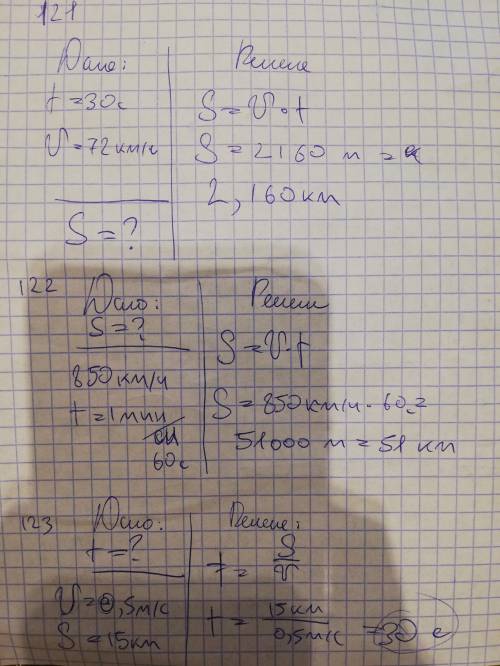 121
Дано:
t=30с
V=72км/ч
S=?
Решене
S=V·t
S=2160 м =
2,160км
122
Дано:
S=?
850км/ч
t=1мин
60с
Решени
S=V·t
S=850км/ч·60с=
51000 м = 51 км
123
Дано:
t=?
V=0,5м/с
S=15км
Решене:
t= S/V
t= 15км/0,5м/с =30 с